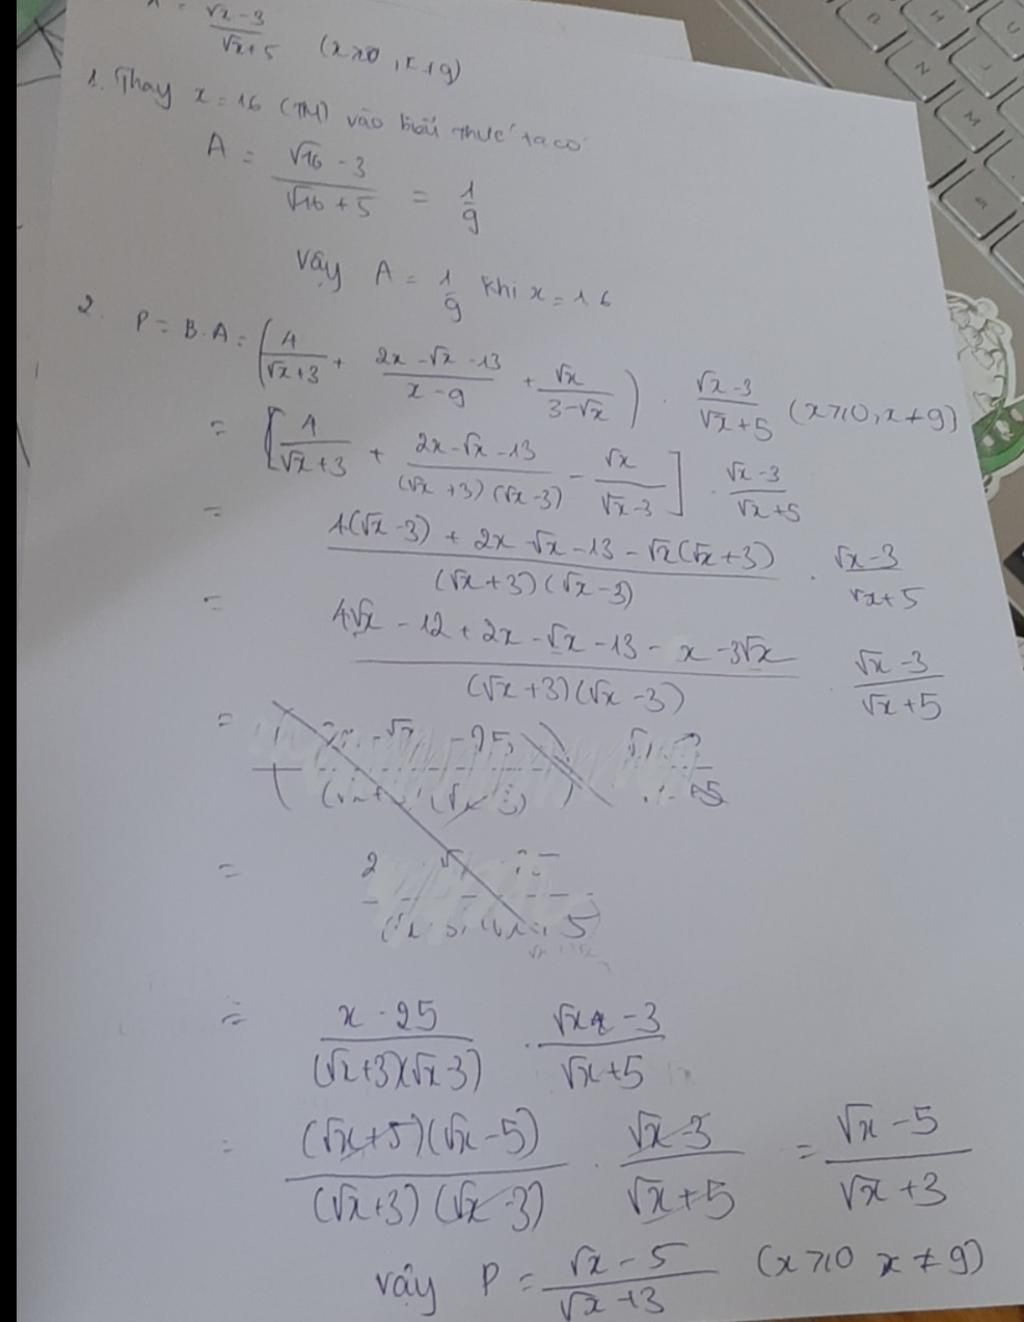 A = \frac{√x-3}{√x+5} (x≥0, x≠9)
1. Thay x = 16 (TM) vào biểu thức ta có
A = \frac{√16 - 3}{√16 + 5} = \frac{1}{9}
Vậy A = \frac{1}{9} khi x = 16
2. P = B.A = (\frac{4}{√x+3} + \frac{2x-√x-13}{x-9} + \frac{√x}{3-√x}) . \frac{√x-3}{√x+5} (x≥0, x≠9)
= [\frac{4}{√x+3} + \frac{2x-√x-13}{(√x+3)(√x-3)} - \frac{√x}{√x-3}] . \frac{√x-3}{√x+5}
= \frac{4(√x-3) + 2x-√x-13-√x(√x+3)}{(√x+3)(√x-3)} . \frac{√x-3}{√x+5}
= \frac{4√x-12+2x-√x-13-x-3√x}{(√x+3)(√x-3)} . \frac{√x-3}{√x+5}
= \frac{x-25}{(√x+3)(√x-3)} . \frac{√x-3}{√x+5}
= \frac{(√x+5)(√x-5)}{(√x+3)(√x-3)} . \frac{√x-3}{√x+5} = \frac{√x-5}{√x+3}
vậy P = \frac{√x-5}{√x+3} (x≥0 x≠9)